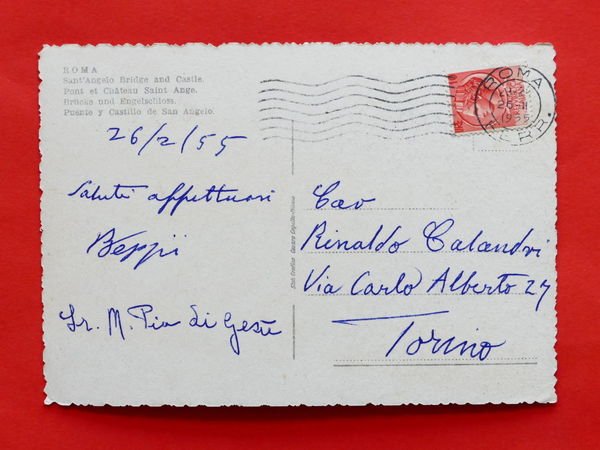 ROMA
Sant'Angelo Bridge and Castle.
Pont et Château Saint Ange.
Brücke und Engelschloss.
Puente y Castillo de San Angelo.
26/2/55
Saluti affettuosi
Beppii
Sr. M. Pia di Gesù
Cav
Rinaldo Calandri
Via Carlo Alberto 27
Torino
ROMA
1955